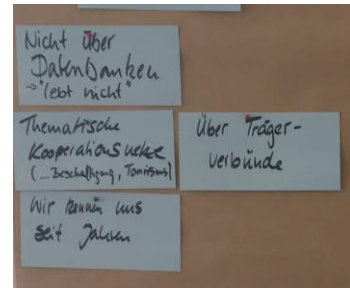 Nicht über
Datenbanken
→ "lebt nicht"
Thematische
Kooperationsnetze
(.... Beschäftigung, Tourismus)
Über Träger-
verbünde
Wir kennen uns
seit Jahren